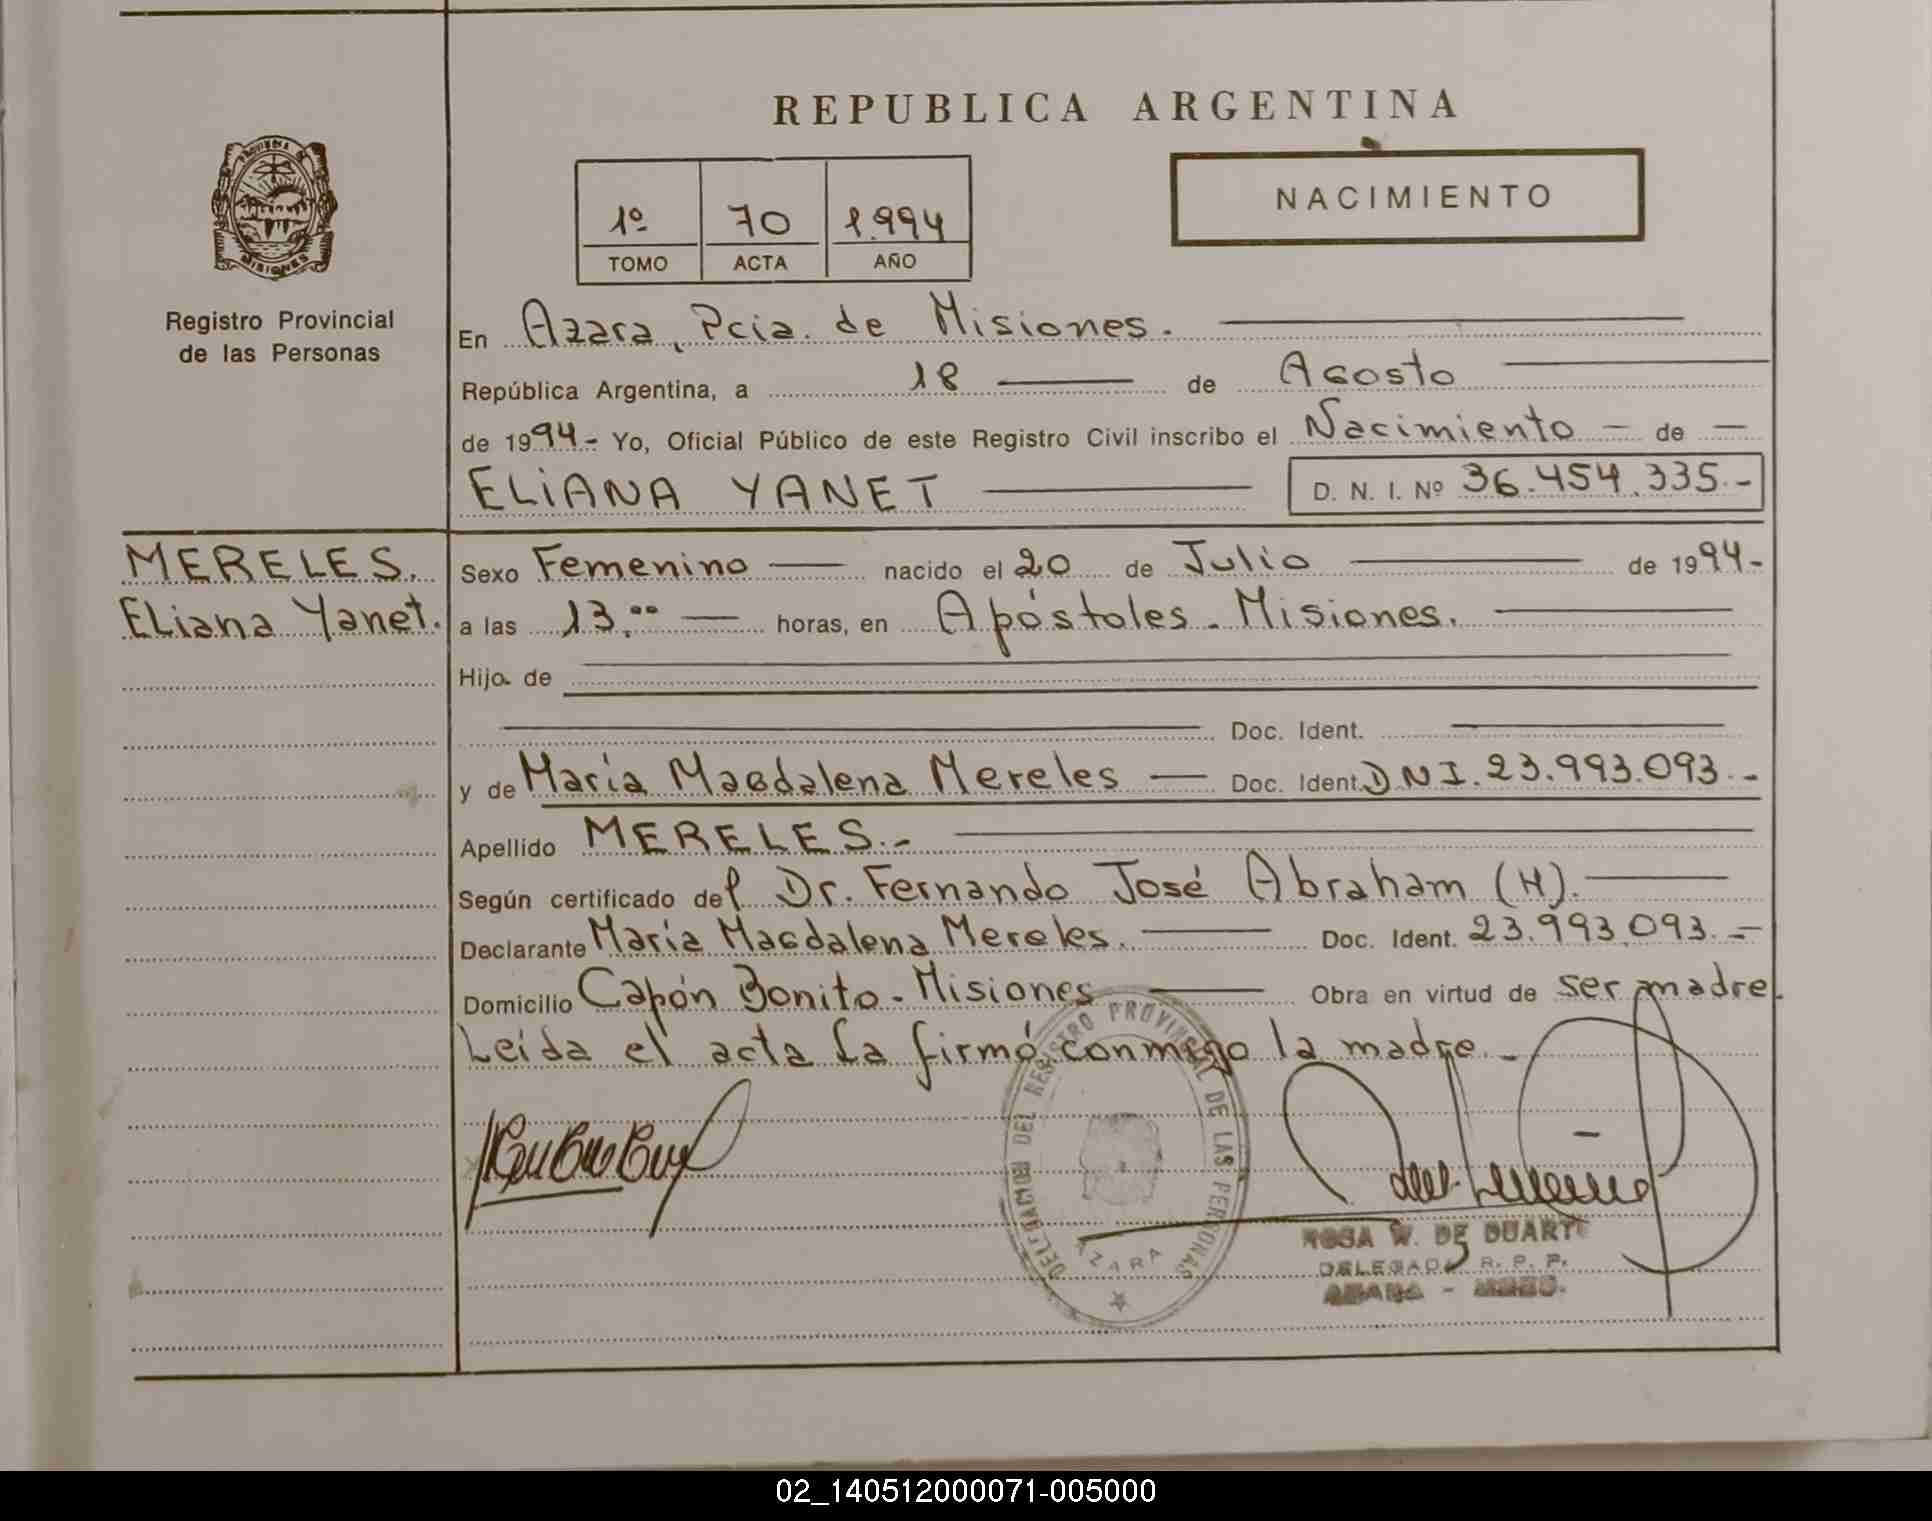 REPUBLICA ARGENTINA
PROVINCIA DE
MISIONES
Registro Provincial
de las Personas
1º 70 1.994
TOMO ACTA AÑO
NACIMIENTO
En Azara, Pcia. de Misiones.
República Argentina, a 18 de Agosto
de 1994.- Yo, Oficial Público de este Registro Civil inscribo el Nacimiento - de -
ELIANA YANET D. N. I. Nº 36.454.335.-
MERELES.
Eliana Yanet.
Sexo Femenino nacido el 20 de Julio de 1994-
a las 13,00 horas, en Apóstoles. Misiones.
Hija de
Doc. Ident.
y de María Magdalena Mereles Doc. Ident. DNI. 23.993.093.-
Apellido MERELES.-
Según certificado del Dr. Fernando José Abraham (H).
Declarante María Magdalena Mereles. Doc. Ident. 23.993.093.-
Domicilio Capón Bonito - Misiones Obra en virtud de ser madre.
Leída el acta la firmó conmigo la madre.-
DELEGACION DEL REGISTRO PROVINCIAL DE LAS PERSONAS
AZARA
ROSA W. DE DUARTE
DELEGADA R. P. P.
AZARA - MNES.
02_140512000071-005000